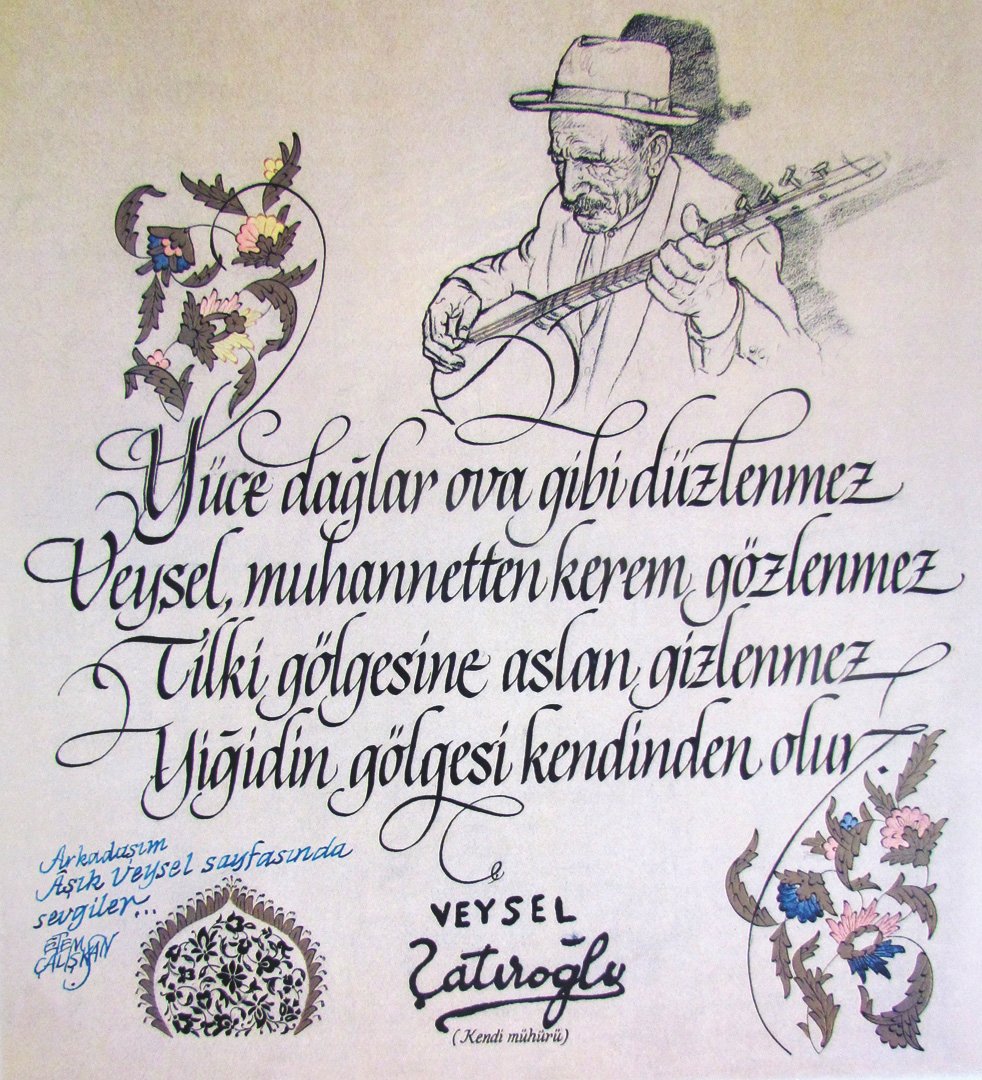 Yüce dağlar ova gibi düzlenmez
Veysel, muhannetten kerem gözlenmez
Tilki gölgesine aslan gizlenmez
Yiğidin gölgesi kendinden olur.
Arkadaşım
Âşık Veysel sayfasında
sevgiler...
ETEM
ÇALIŞKAN
VEYSEL
Çatıroğlu
(Kendi mühürü)